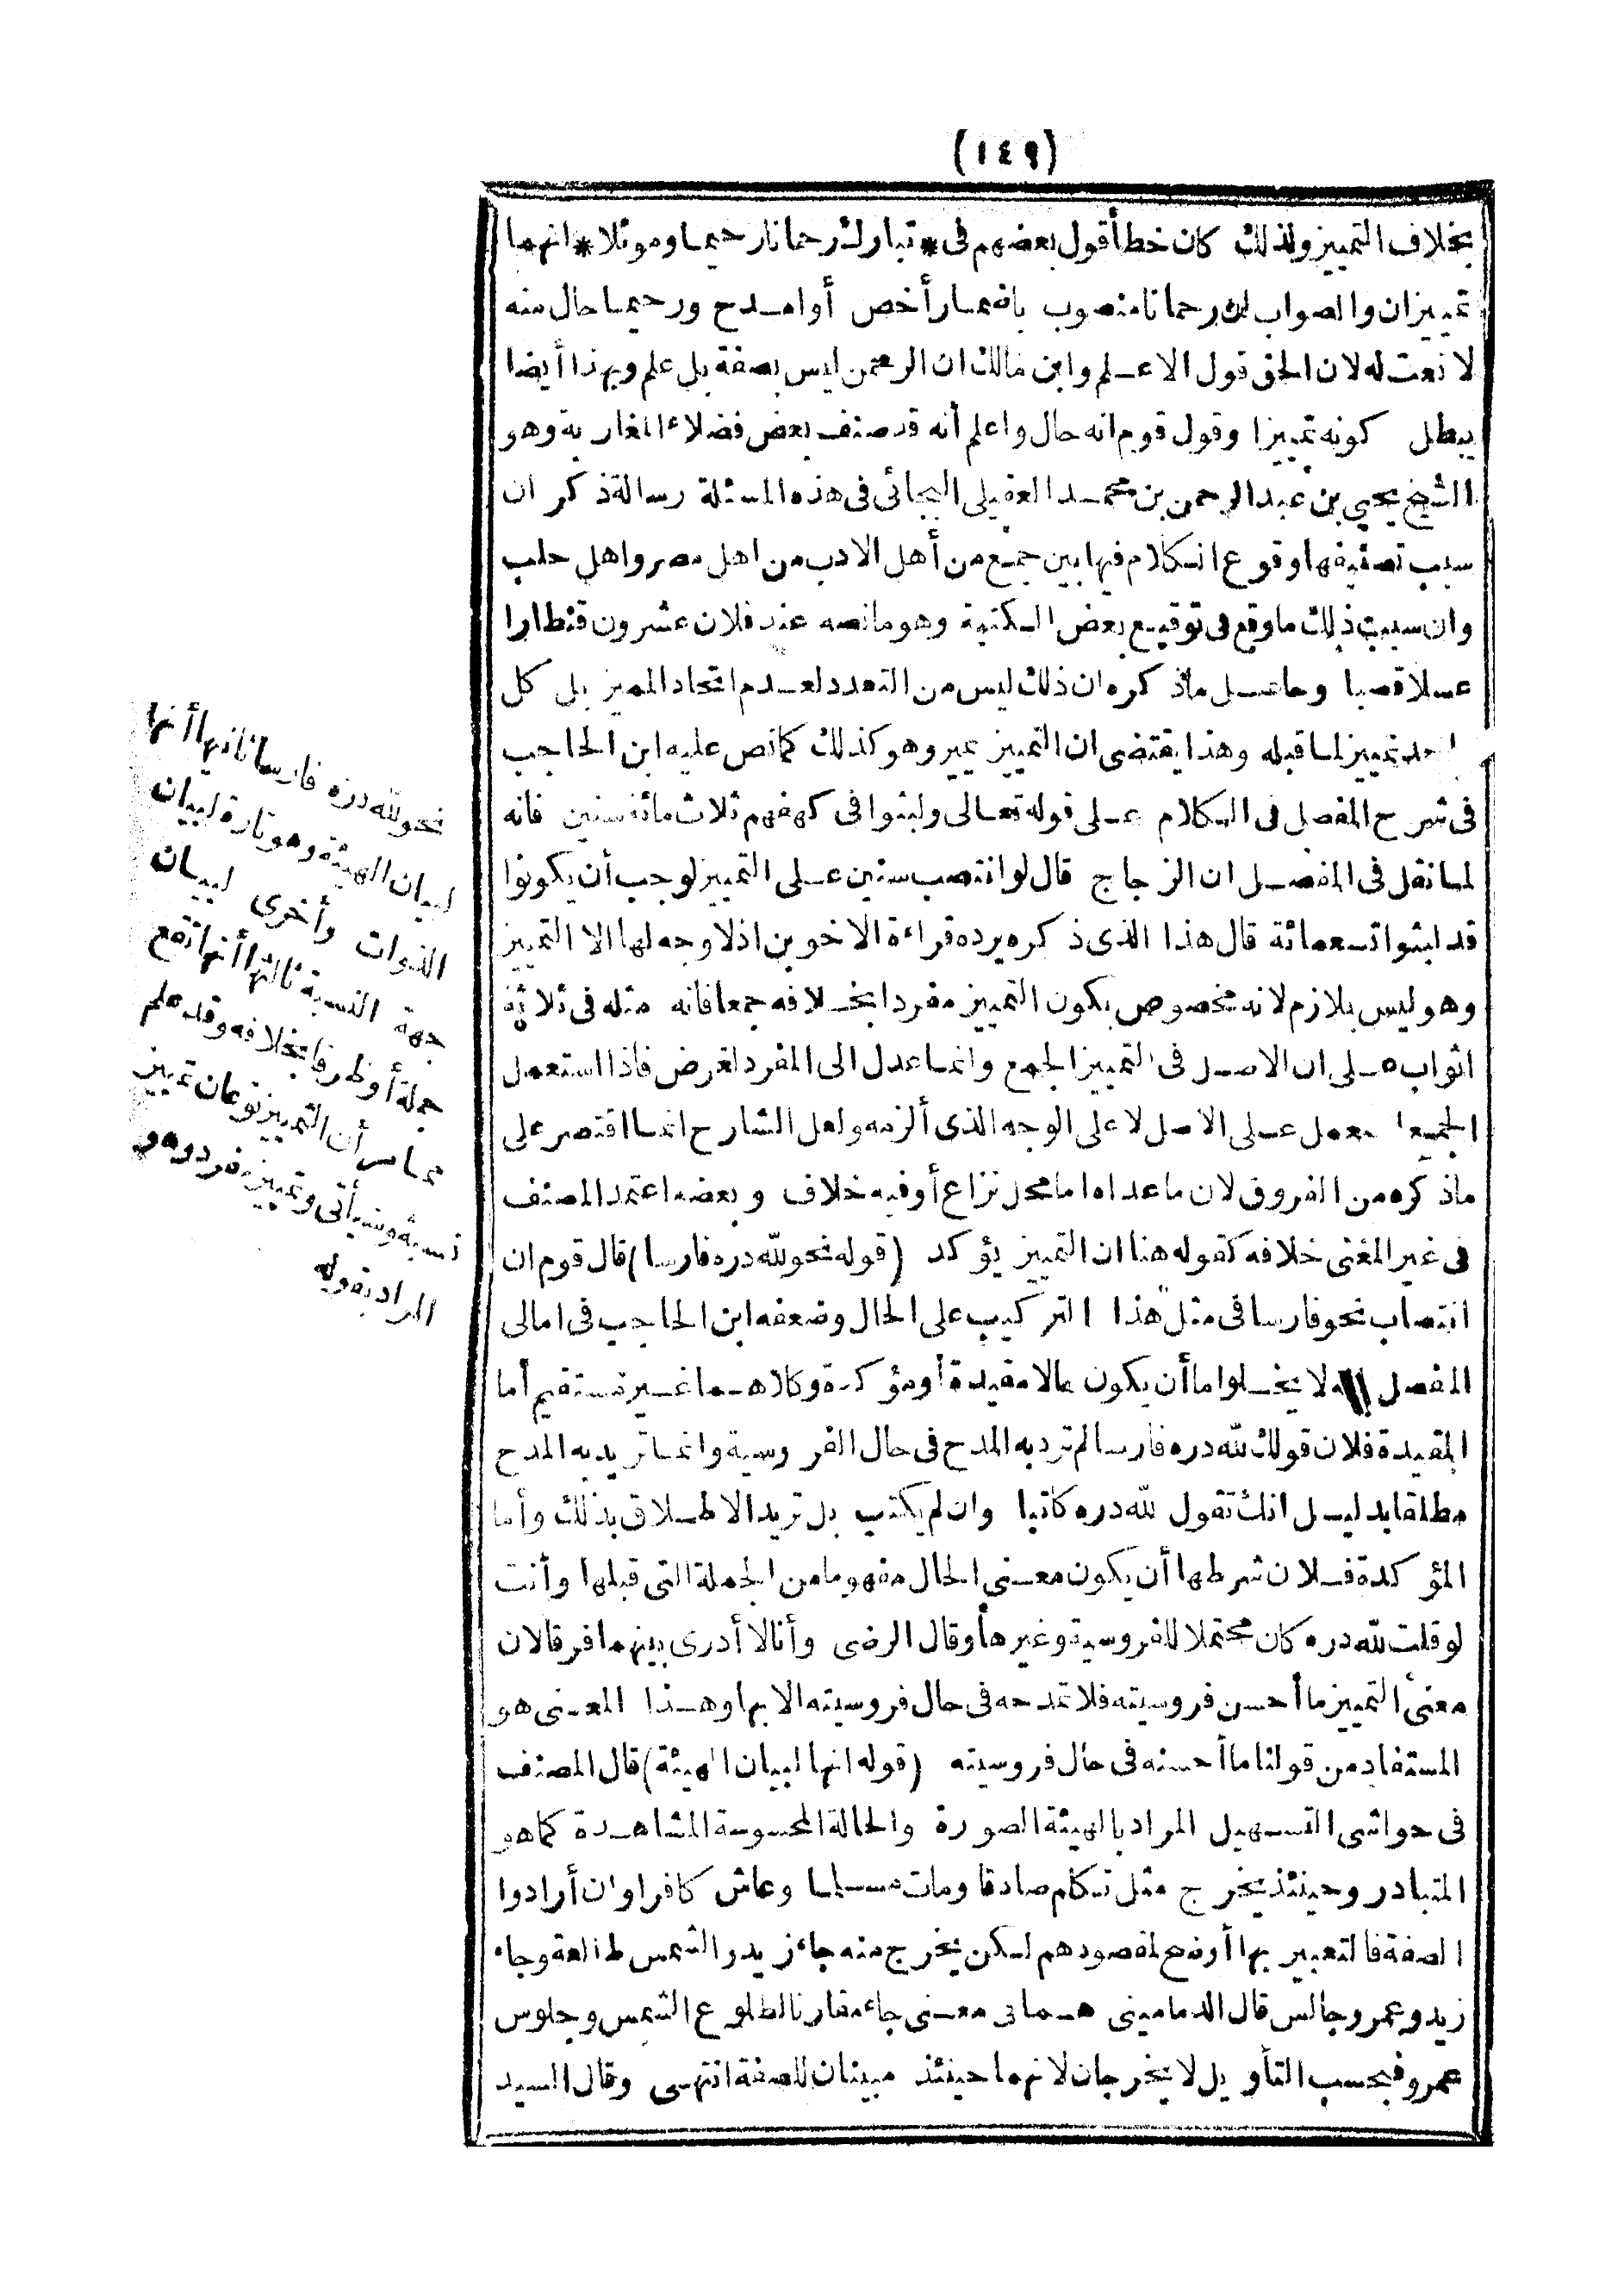 (١٤٩)
بخلاف التمييز ولذلك كان خطأ قول بعضهم فى * تبارك رحمانا رحيما وموئلا * انهما
تمييزان والصواب ان رحمانا منصوب باضمار أخص أو امدح ورحيما حال منه
لا نعت له لان الحق قول الاعلم وابن مالك ان الرحمن ليس بصفة بل علم وبهذا أيضا
يبطل كونه تمييزا وقول قوم انه حال واعلم أنه قد صنف بعض فضلاء المغاربة وهو
الشيخ يحيى بن عبد الرحمن بن محمد العقيلى البجائى فى هذه المسئلة رسالة ذكر ان
سبب تصنيفها وقوع الكلام فيها بين جمع من أهل الادب من اهل مصر واهل حلب
وان سبب ذلك ما وقع فى توقيع بعض الكتبة وهو ما نصه عند فلان عشرون قنطارا
عسلا قصبا وحاصل ماذكره ان ذلك ليس من التعدد لعدم اتحاد المميز بل كل
واحد تمييز لما قبله وهذا يقتضى ان التمييز يميز وهو كذلك كما نص عليه ابن الحاجب
فى شرح المفصل فى الكلام على قوله تعالى ولبثوا فى كهفهم ثلاث مائة سنين فانه
لما نقل فى المفصل ان الزجاج قال لو انتصب سنين على التمييز لوجب أن يكونوا
قد لبثوا تسعمائة قال هذا الذى ذكره يرده قراءة الاخوين اذلا وجه لها الا التمييز
وهو ليس بلازم لانه مخصوص بكون التمييز مفردا بخلافه جمعا فانه مثله فى ثلاثة
اثواب على ان الاصل فى التمييز الجمع وانما عدل الى المفرد لغرض فاذا استعمل
الجمع استعمل على الاصل لا على الوجه الذى ألزمه ولعل الشارح انما اقتصر على
ماذكره من الفروق لان ما عداه اما محل نزاع أو فيه خلاف وبعضه اعتمد المصنف
فى غير المغنى خلافه كقوله هنا ان التمييز يؤكد (قوله نحو لله دره فارسا) قال قوم ان
انتصاب نحو فارسا فى مثل هذا التركيب على الحال وضعفه ابن الحاجب فى امالى
المفصل بانه لا يخلو اما أن يكون حالا مقيدة أو مؤكدة وكلاهما غير مستقيم أما
المقيدة فلان قولك لله دره فارسا لم ترد به المدح فى حال الفروسية وانما تريد به المدح
مطلقا بدليل انك تقول لله دره كاتبا وان لم يكتب بل تريد الاطلاق بذلك وأما
المؤكدة فلان شرطها أن يكون معنى الحال مفهوما من الجملة التى قبلها وأنت
لو قلت لله دره كان محتملا للفروسية وغيرها وقال الرضى وأنا لا أدرى بينهما فرقا لان
معنى التمييز ما أحسن فروسيته فلا تمدحه فى حال فروسيته الا بها وهذا المعنى هو
المستفاد من قولنا ما أحسنه فى حال فروسيته (قوله انها لبيان الهيئة) قال المصنف
فى حواشى التسهيل المراد بالهيئة الصورة والحالة المحسوسة المشاهدة كما هو
المتبادر وحينئذ يخرج مثل تكلم صادقا ومات مسلما وعاش كافرا وان أرادوا
الصفة فالتعبير بها أوضح لمقصودهم لكن يخرج منه جاء زيد والشمس طالعة وجاء
زيد وعمرو جالس قال الدمامينى هما فى معنى جاء مقارنا لطلوع الشمس وجلوس
عمرو فبحسب التأويل لا يخرجان لانهما حينئذ مبينان للصفة انتهى وقال السيد
نحو لله دره فارسا ثانيها أنها
لبيان الهيئة وهو تارة لبيان
الذوات وأخرى لبيان
جهة النسبة ثالثها أنها تقع
جملة أو ظرفا بخلافه وقد علم
مما مر أن التمييز نوعان تمييز
نسبة وسيأتى وتمييز مفرد وهو
المراد بقوله